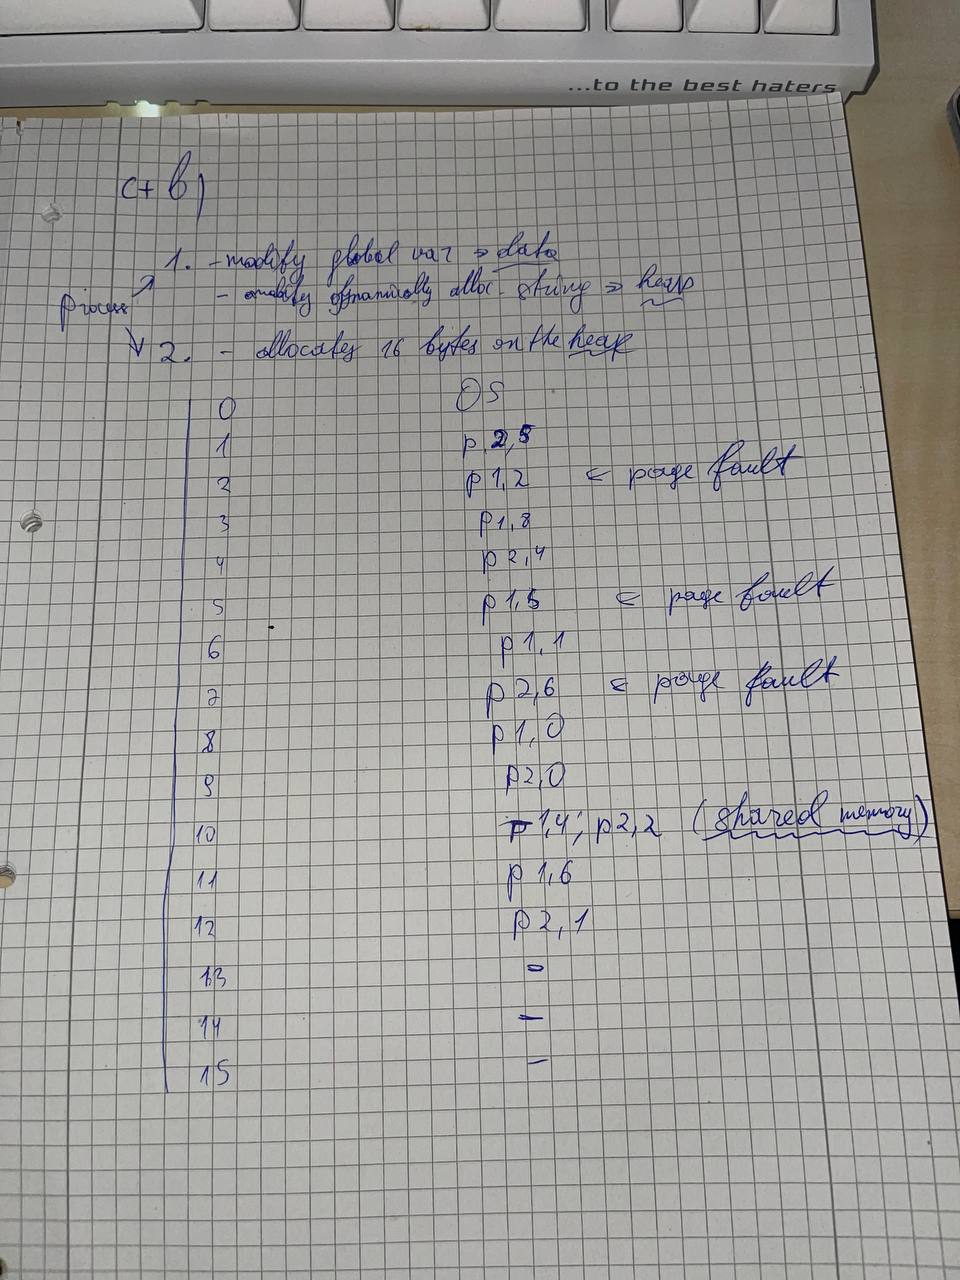 ...to the best haters
c+b)
1. - modify global var => data
process
- modify dynamically alloc. string => heap
2. - allocates 16 bytes on the heap
0 OS
1 p 2,5
2 p 1,2 ← page fault
3 p 1,8
4 p 2,4
5 p 1,5 ← page fault
6 p 1,1
7 p 2,6 ← page fault
8 p 1,0
9 p 2,0
10 p 1,4; p 2,2 (shared memory)
11 p 1,6
12 p 2,1
13 -
14 -
15 -